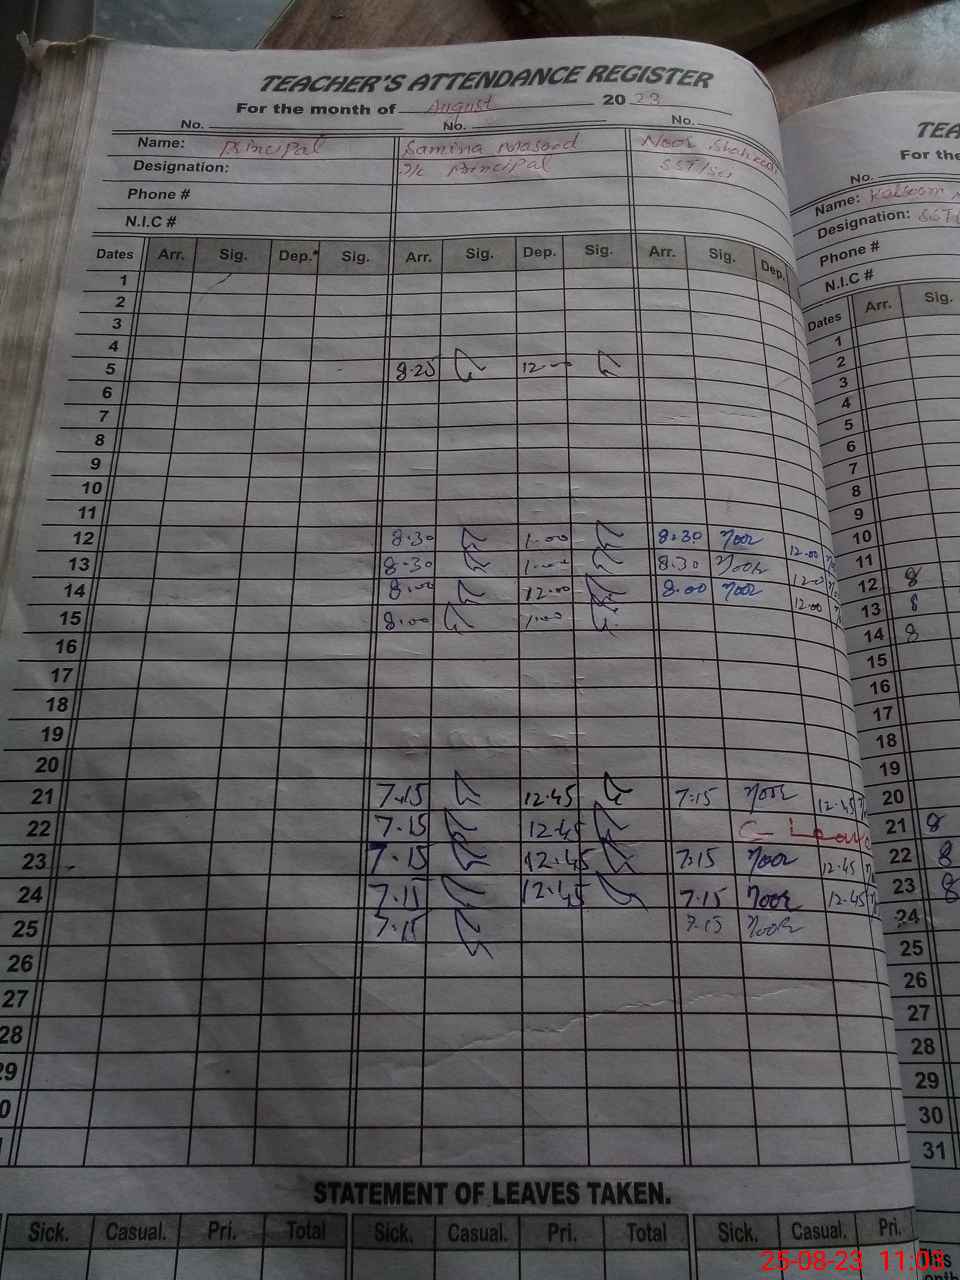 TEACHER'S ATTENDANCE REGISTER
For the month of August 2023
No. No. No.
Name: Principal Samina Masood Noor Shaheen
Designation: I/c Principal SST/Sci
Phone #
N.I.C #
Dates Arr. Sig. Dep. Sig. Arr. Sig. Dep. Sig. Arr. Sig. Dep.
1
2
3
4
5 8.25 12.00
6
7
8
9
10
11
12 8.30 1.00 8.30 Noor 12.00
13 8.30 1.00 8.30 Noor 12.00
14 8.00 12.00 8.00 Noor 12.00
15 8.00 1.00
16
17
18
19
20
21 7.15 12.45 7.15 Noor 12.45
22 7.15 12.45 C- Leave
23 7.15 12.45 7.15 Noor 12.45
24 7.15 12.45 7.15 Noor 12.45
25 7.15 7.15 Noor
26
27
28
29
0
STATEMENT OF LEAVES TAKEN.
Sick. Casual. Pri. Total Sick. Casual. Pri. Total Sick. Casual. Pri.
TEA
For the
No.
Name: Kalsoom
Designation: SST
Phone #
N.I.C #
Dates Arr. Sig.
1
2
3
4
5
6
7
8
9
10
11
12 8
13 8
14 8
15
16
17
18
19
20
21 8
22 8
23 8
24
25
26
27
28
29
30
31
25-08-23 11:03